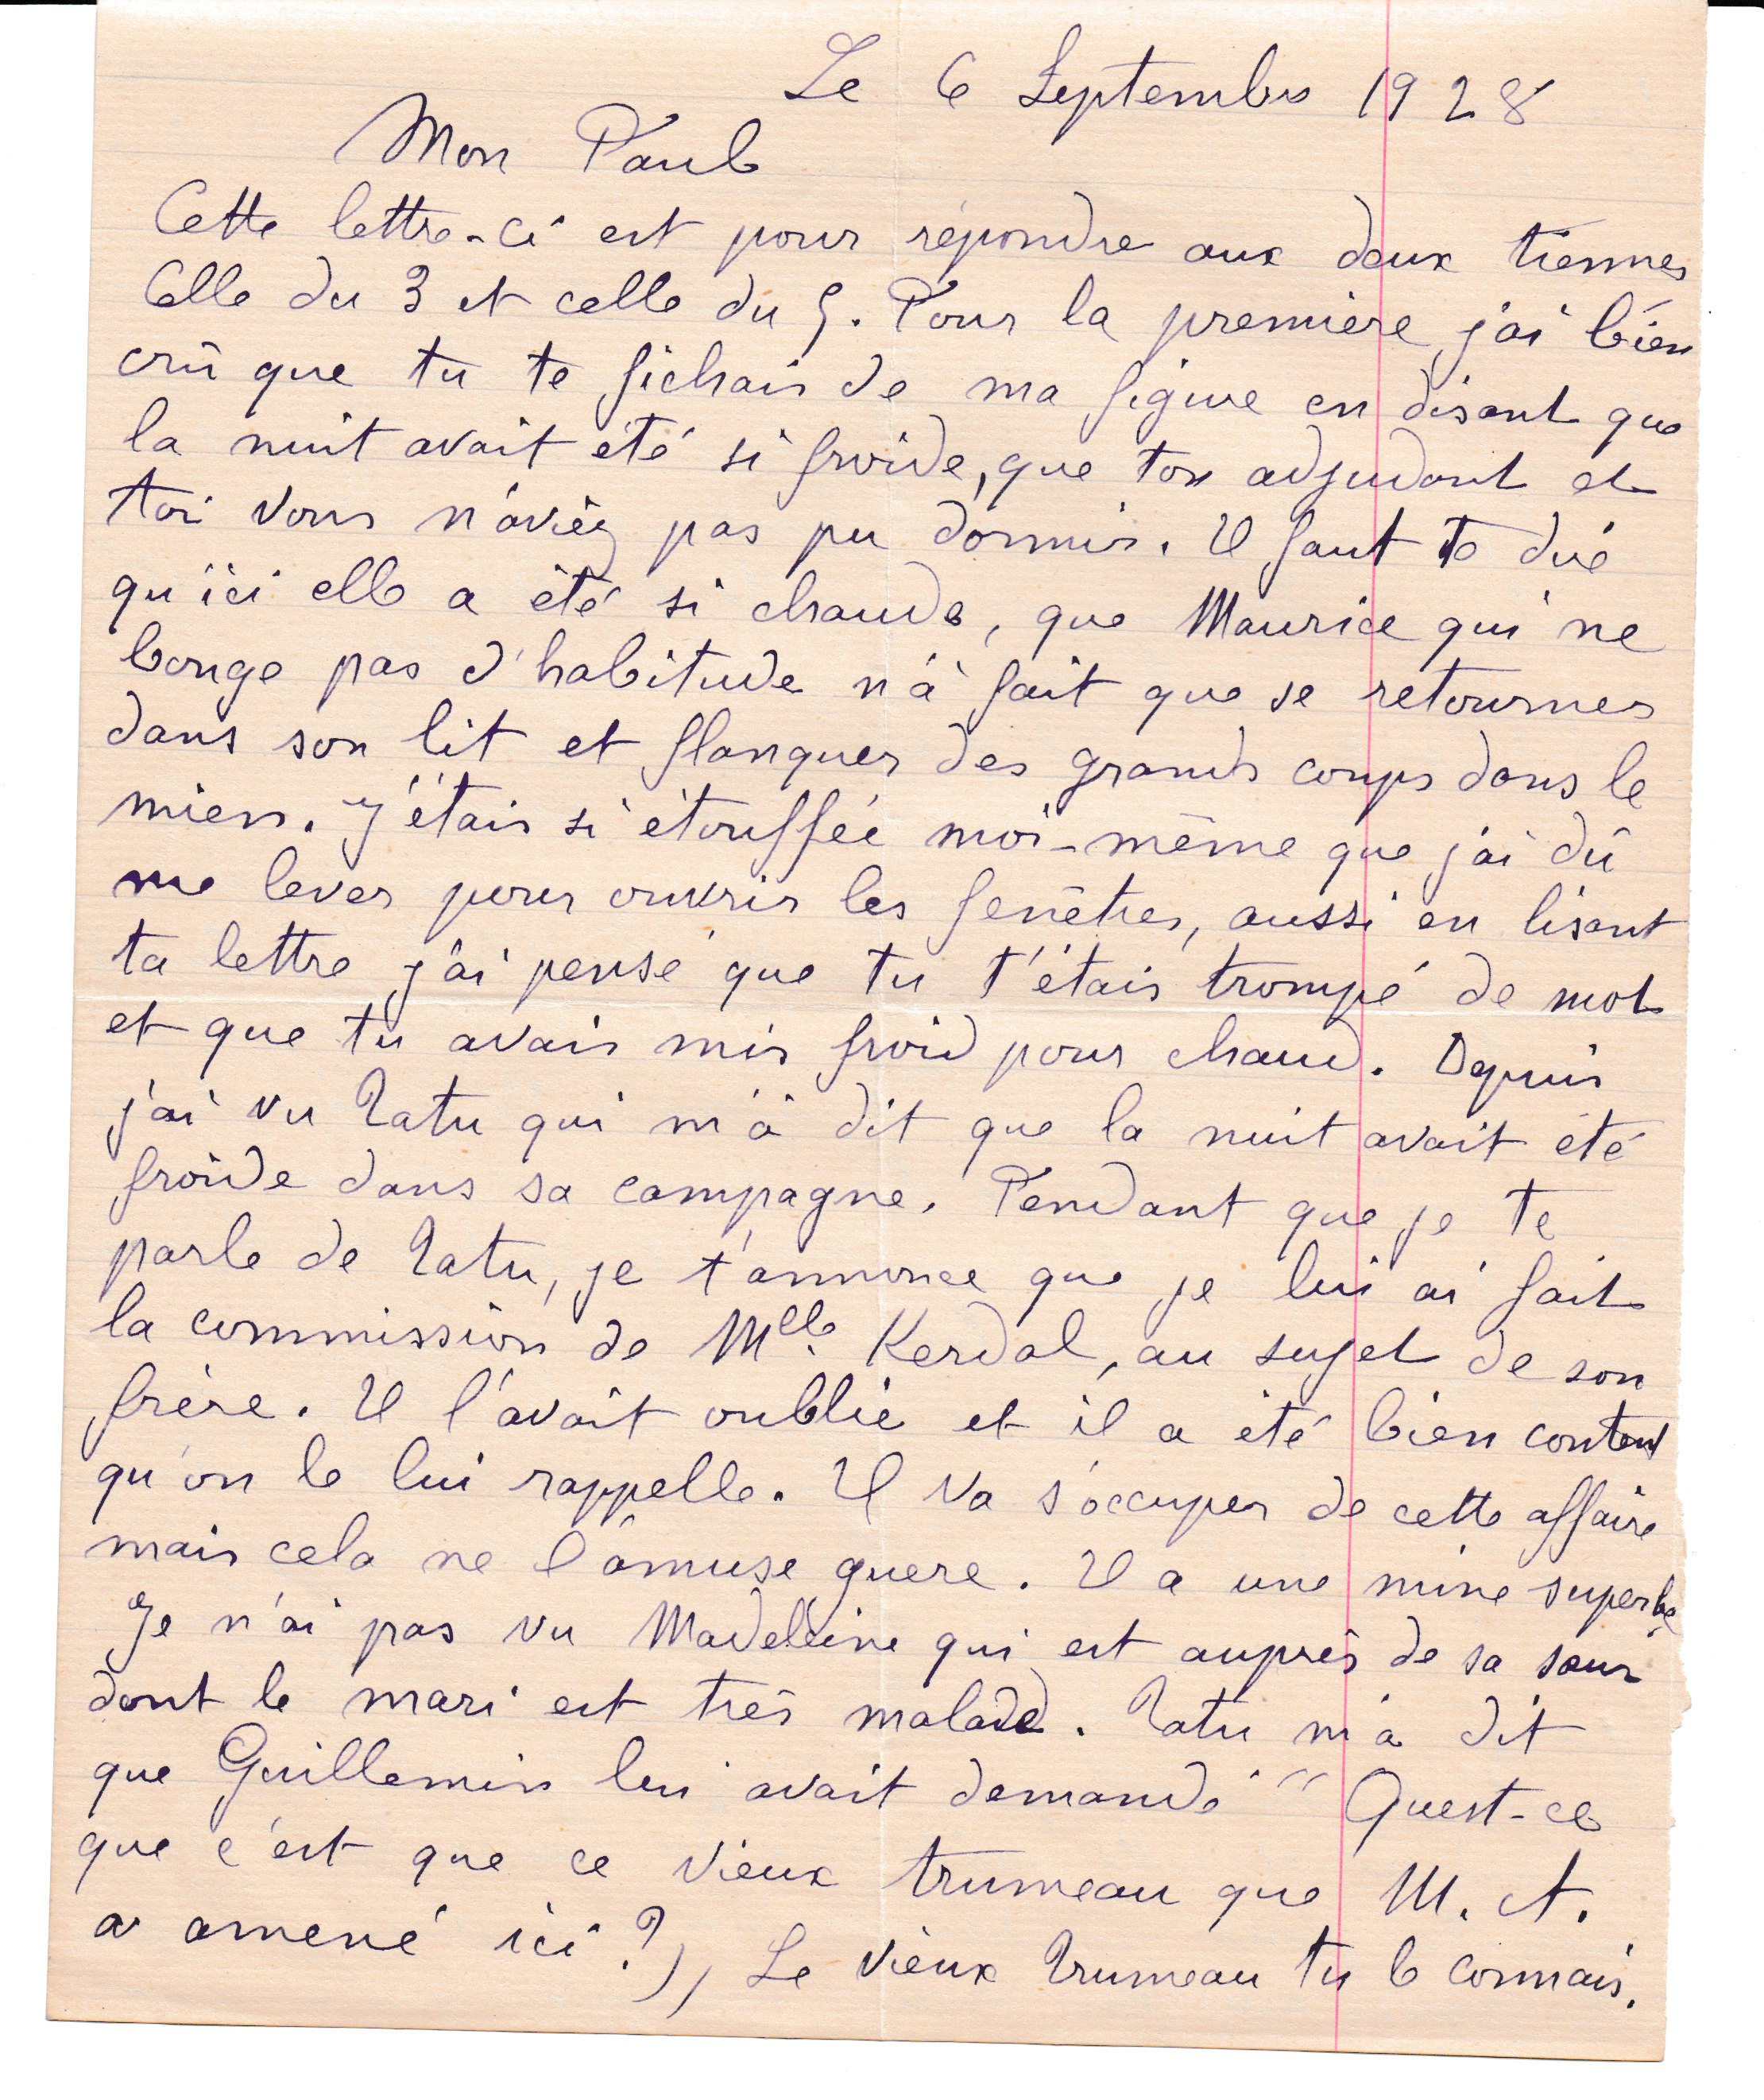 Le 6 Septembre 1928
Mon Paul
Cette lettre-ci est pour répondre aux deux tiennes
Celle du 3 et celle du 5. Pour la première, j'ai bien
crû que tu te fichais de ma figure en disant que
la nuit avait été si froide, que ton adjudant et
toi vous n'aviez pas pu dormir. Il faut te dire
qu'ici elle a été si chaude, que Maurice qui ne
bouge pas d'habitude n'a fait que se retourner
dans son lit et flanquer des grands coups dans le
mien. J'étais si étouffée moi-même que j'ai dû
me lever pour ouvrir les fenêtres, aussi en lisant
ta lettre j'ai pensé que tu t'étais trompé de mot
et que tu avais mis froid pour chaud. Depuis
j'ai vu Tatu qui m'a dit que la nuit avait été
froide dans sa campagne. Pendant que je te
parle de Tatu, je t'annonce que je lui ai fait
la commission de Melle Kerdal, au sujet de son
frère. Il l'avait oublié et il a été bien content
qu'on le lui rappelle. Il va s'occuper de cette affaire
mais cela ne l'amuse guère. Il a une mine superbe.
Je n'ai pas vu Madeleine qui est auprès de sa sœur
dont le mari est très malade. Tatu m'a dit
que Guillemin lui avait demandé " Quest-ce
que c'est que ce vieux trumeau que M. A.
a amené ici ? ", Le vieux trumeau tu le connais.